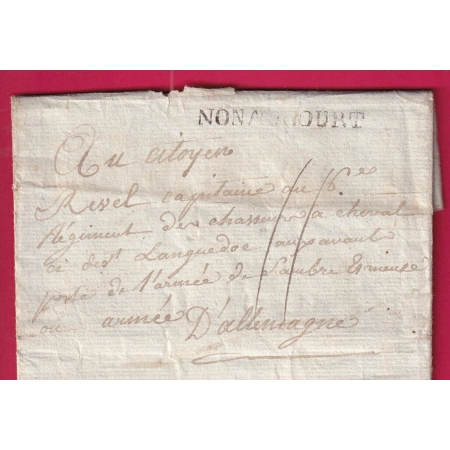 NONANCOURT
Au citoyen
Revel capitaine du 6e
Régiment de chasseurs a cheval
ci devt Languedoc auparavant
porté de l'armée de Sambre Et meuse
ou armée D'allemagne
11